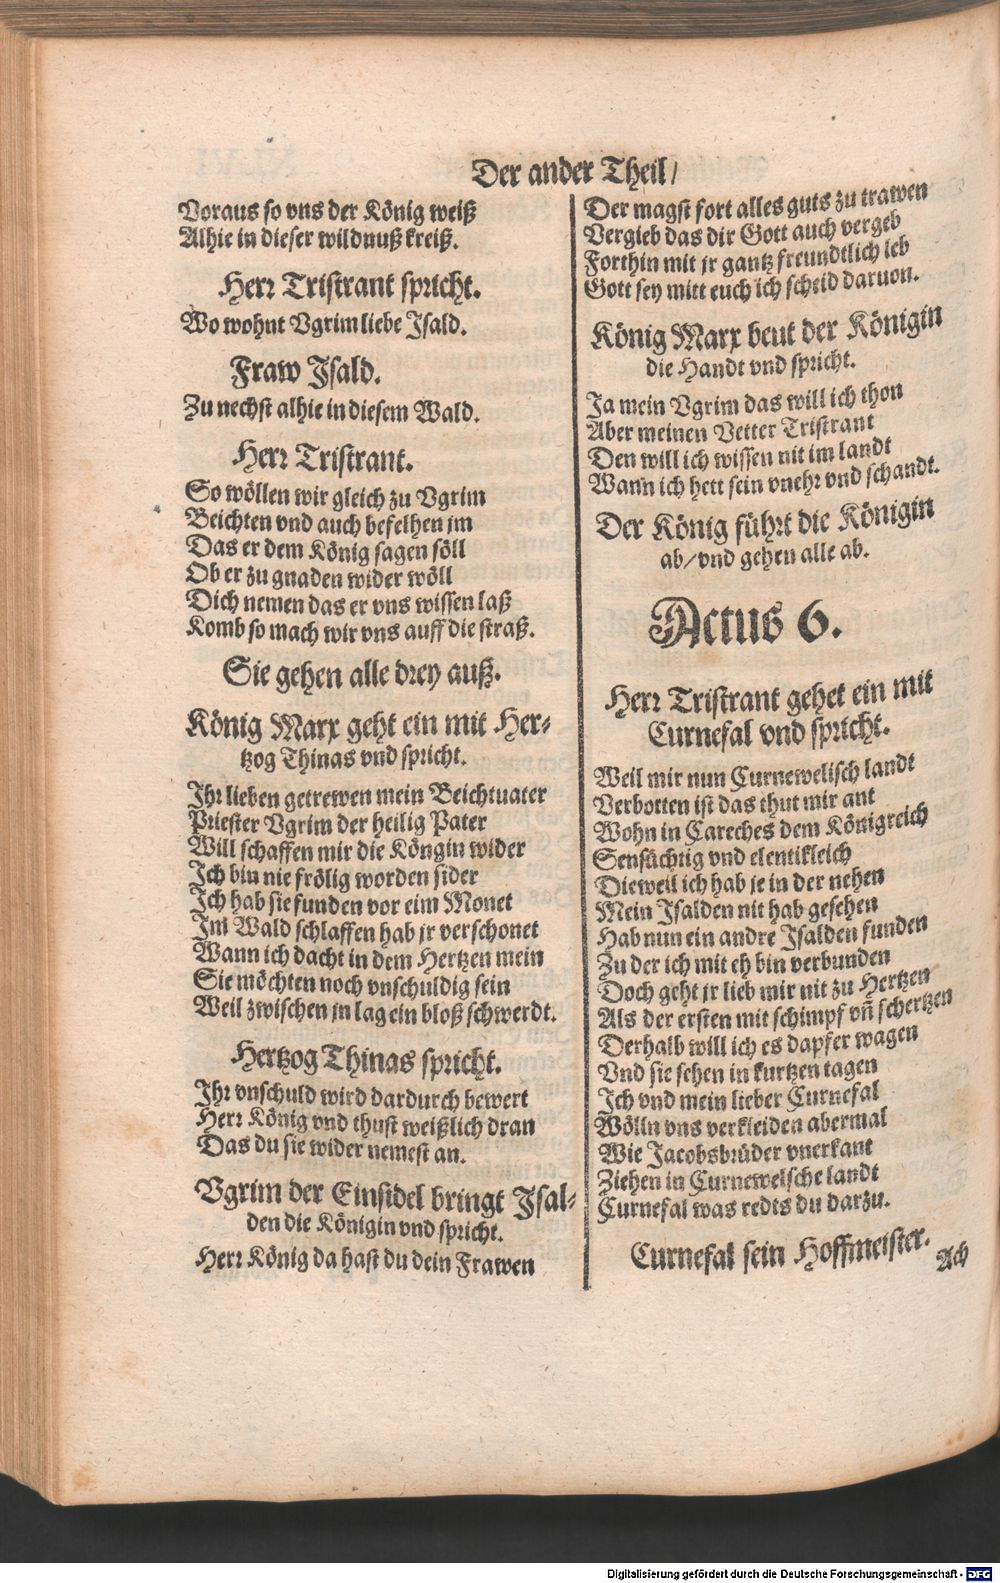 Der ander Theil/
Voraus so vns der König weiß
Alhie in dieser wildnuß kreiß.
Herr Tristrant spricht.
Wo wohnt Vgrim liebe Isald.
Fraw Isald.
Zu nechst alhie in diesem Wald.
Herr Tristrant.
So wöllen wir gleich zu Vgrim
Beichten vnd auch befelhen jm
Das er dem König sagen söll
Ob er zu gnaden wider wöll
Dich nemen das er vns wissen laß
Komb so mach wir vns auff die straß.
Sie gehen alle drey auß.
König Marx geht ein mit Her-
tzog Thinas vnd spricht.
Ihr lieben getrewen mein Beichtuater
Priester Vgrim der heilig Pater
Will schaffen mir die Köngin wider
Ich bin nie frölig worden sider
Ich hab sie funden vor eim Monet
Im Wald schlaffen hab jr verschonet
Wann ich dacht in dem Hertzen mein
Sie möchten noch vnschuldig sein
Weil zwischen jn lag ein bloß schwerdt.
Hertzog Thinas spricht.
Ihr vnschuld wird dardurch bewert
Herr König vnd thust weißlich dran
Das du sie wider nemest an.
Vgrim der Einsidel bringt Isal-
den die Königin vnd spricht.
Herr König da hast du dein Frawen
Der magst fort alles guts zu trawen
Vergieb das dir Gott auch vergeb
Forthin mit jr gantz freundtlich leb
Gott sey mitt euch ich scheid daruon.
König Marx beut der Königin
die Handt vnd spricht.
Ja mein Vgrim das will ich thon
Aber meinen Vetter Tristrant
Den will ich wissen nit im landt
Wann ich hett sein vnehr vnd schandt.
Der König führt die Königin
ab/vnd gehen alle ab.
Actus 6.
Herr Tristrant gehet ein mit
Curnefal vnd spricht.
Weil mir nun Curnewelisch landt
Verbotten ist das thut mir ant
Wohn in Careches dem Königreich
Sensüchtig vnd elentikleich
Dieweil ich hab je in der nehen
Mein Isalden nit hab gesehen
Hab nun ein andre Isalden funden
Zu der ich mit eh bin verbunden
Doch geht jr lieb mir nit zu Hertzen
Als der ersten mit schimpf vñ schertzen
Derhalb will ich es dapfer wagen
Vnd sie sehen in kurtzen tagen
Ich vnd mein lieber Curnefal
Wölln vns verkleiden abermal
Wie Jacobsbrüder vnerkant
Ziehen in Curnewelsche landt
Curnefal was redts du darzu.
Curnefal sein Hoffmeister.
Ach
Digitalisierung gefördert durch die Deutsche Forschungsgemeinschaft - DFG